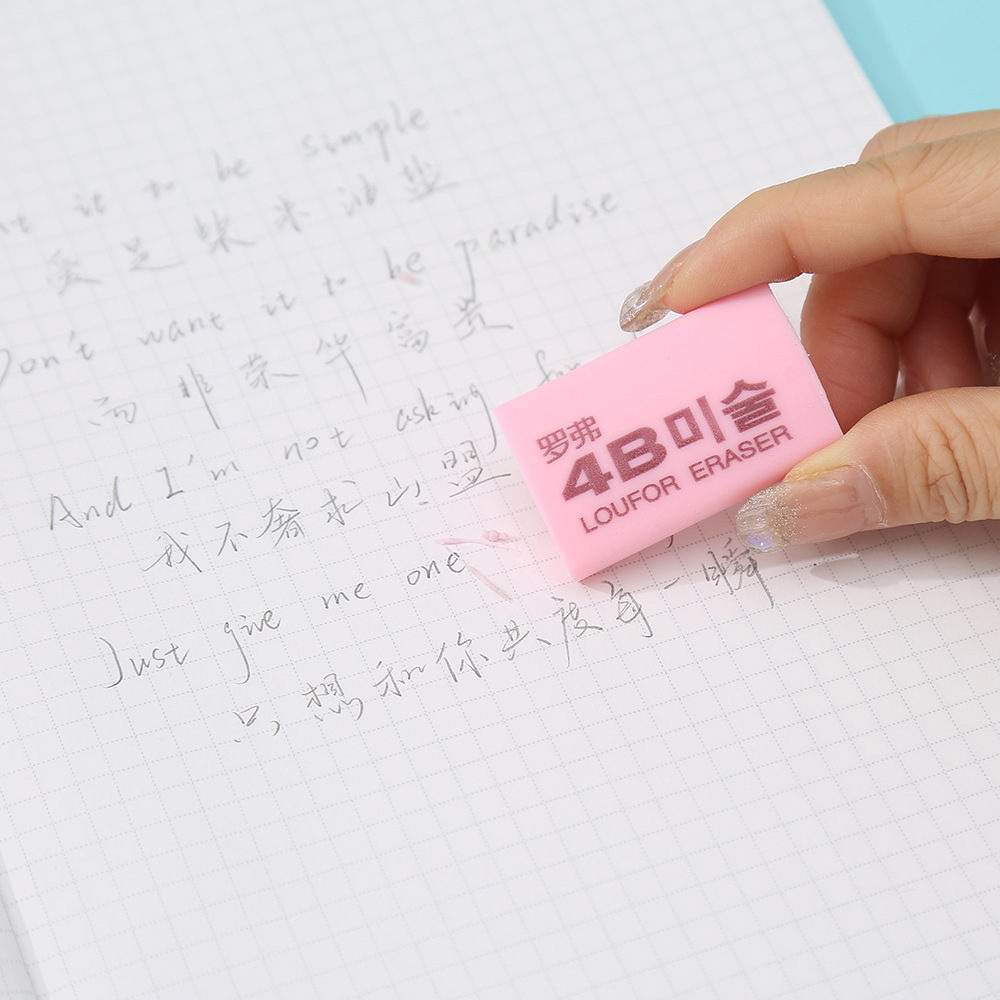 it to be simple
爱是柴米油盐
Don't want it to be paradise
而非荣华富贵
And I'm not asking for
我不奢求山盟
Just give me one
只想和你共度每一瞬
罗弗
4B미술
LOUFOR ERASER